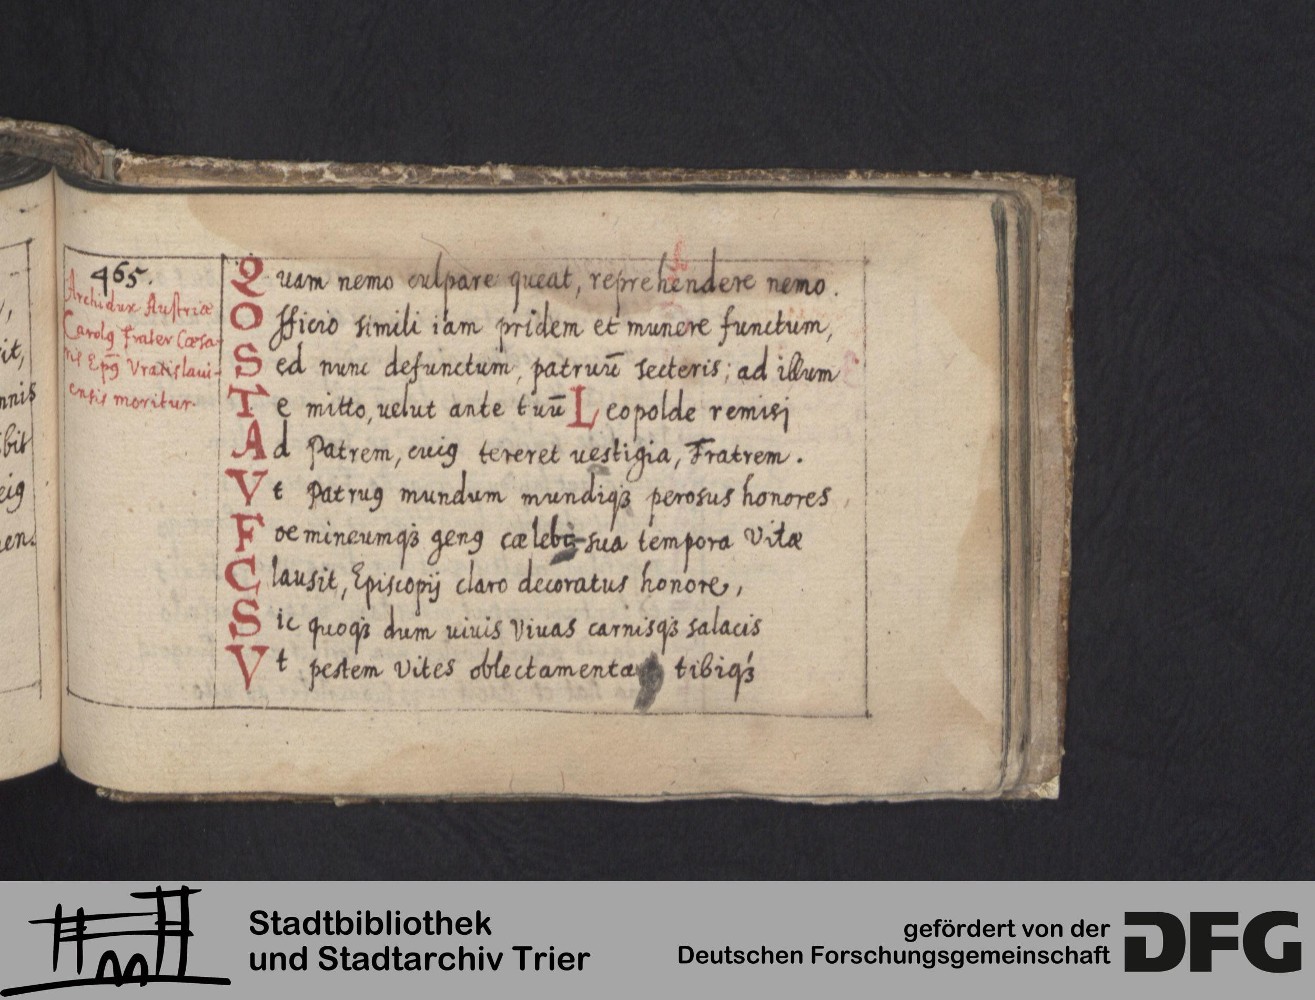 465.
Archidux Austriæ
Carolꝯ Frater Cæsa-
ris Ep̄ꝯ Vratislaui-
ensis moritur.
Quam nemo culpare queat, reprehendere nemo.
Officio simili iam pridem et munere functum,
Sed nunc defunctum, patruū secteris; ad illum
Te mitto, uelut ante tuū Leopolde remisi
Ad Patrem, cuiꝯ tereret uestigia, Fratrem.
Vt Patruꝯ mundum mundiqꝫ perosus honores
Foemineumqꝫ genꝯ cælebs sua tempora Vitæ
Clausit, Episcopij claro decoratus honore,
Sic quoqꝫ dum uiuis Viuas carnisqꝫ salacis
Vt pestem Vites oblectamenta tibiqꝫ
it,
nnis
bit
eiꝯ
en.
Stadtbibliothek
und Stadtarchiv Trier
gefördert von der
Deutschen Forschungsgemeinschaft
DFG